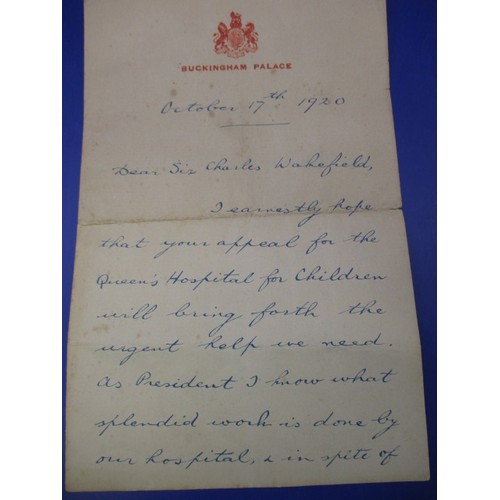 BUCKINGHAM PALACE
October 17th 1920
Dear Sir Charles Wakefield,
I earnestly hope
that your appeal for the
Queen's Hospital for Children
will bring forth the
urgent help we need.
As President I know what
splendid work is done by
our hospital, & in spite of